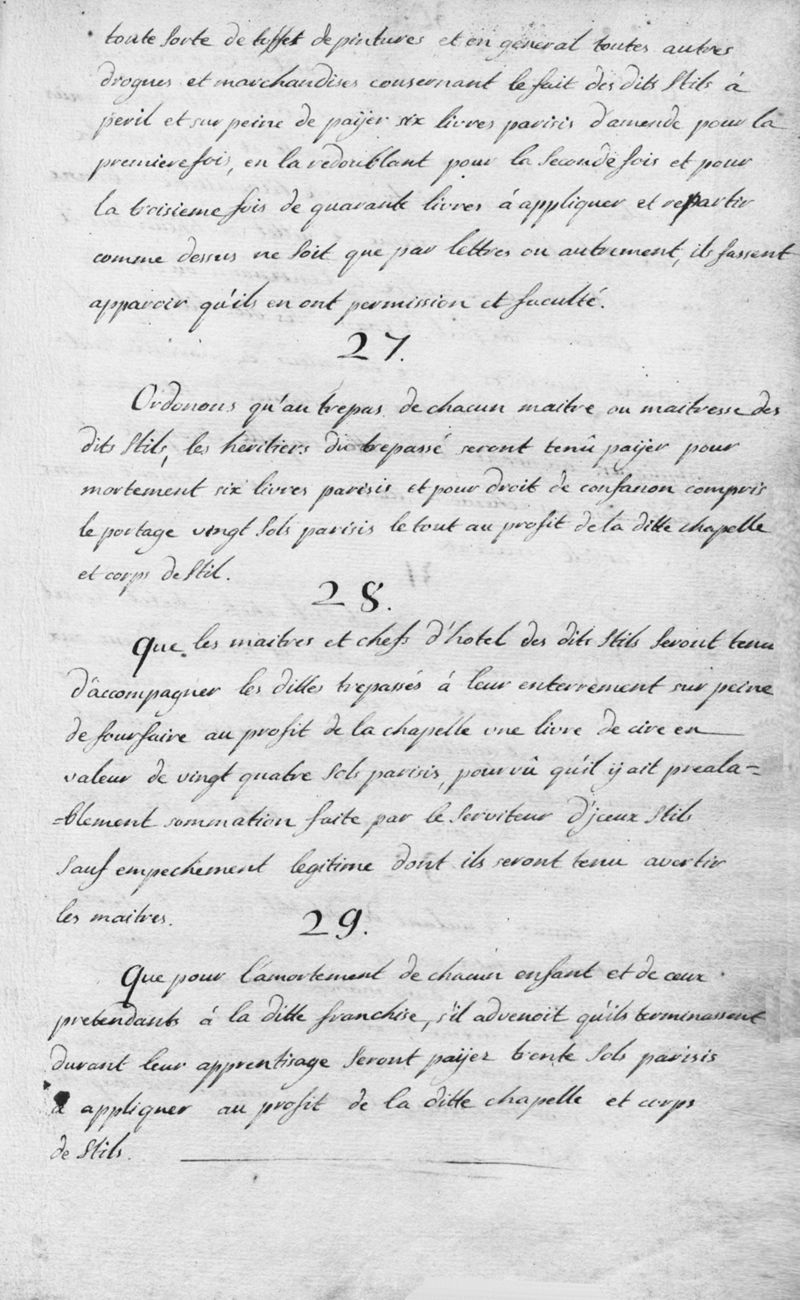 toute sorte de teffet de pintures et en general toutes autres
drogues et marchandises consernant le fait des dits Stils à
peril et sur peine de paijer six livres parisis d'amende pour la
premiere fois, en la redoublant pour la seconde fois et pour
la troisieme fois de quarante livres á appliquer et repartir
comme dessus ne soit que par lettres ou autrement, ils fassent
apparoir qu'ils en ont permission et faculté.
27.
Ordonons qu'au trepas de chacun maitre ou maitresse des
dits Stils, les heritiers du trepassé seront tenû paijer pour
mortement six livres parisis et pour droit de confanon compris
le portage vingt sols parisis le tout au profit de la ditte chapelle
et corps de Stil.
28.
Que les maitres et chefs d'hotel des dits Stils seront tenu
d'accompagner les dittes trepassés à leur enterrement sur peine
de fourfaire au profit de la chapelle une livre de cire en
valeur de vingt quatre sols parisis, pourvû qu'il ij ait preala=
=blement sommation faite par le serviteur d'jceux Stils
sauf empechement legitime dont ils seront tenu avertir
les maitres.
29.
Que pour l'amortement de chacun enfant et de ceux
pretendants á la ditte franchise, s'il advenoit qu'ils terminassent
durant leur apprentisage seront paijez trente sols parisis
à appliquer au profit de la ditte chapelle et corps
de Stils.